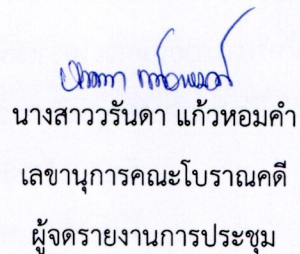 นางสาววรันดา แก้วหอมคำ
เลขานุการคณะโบราณคดี
ผู้จดรายงานการประชุม